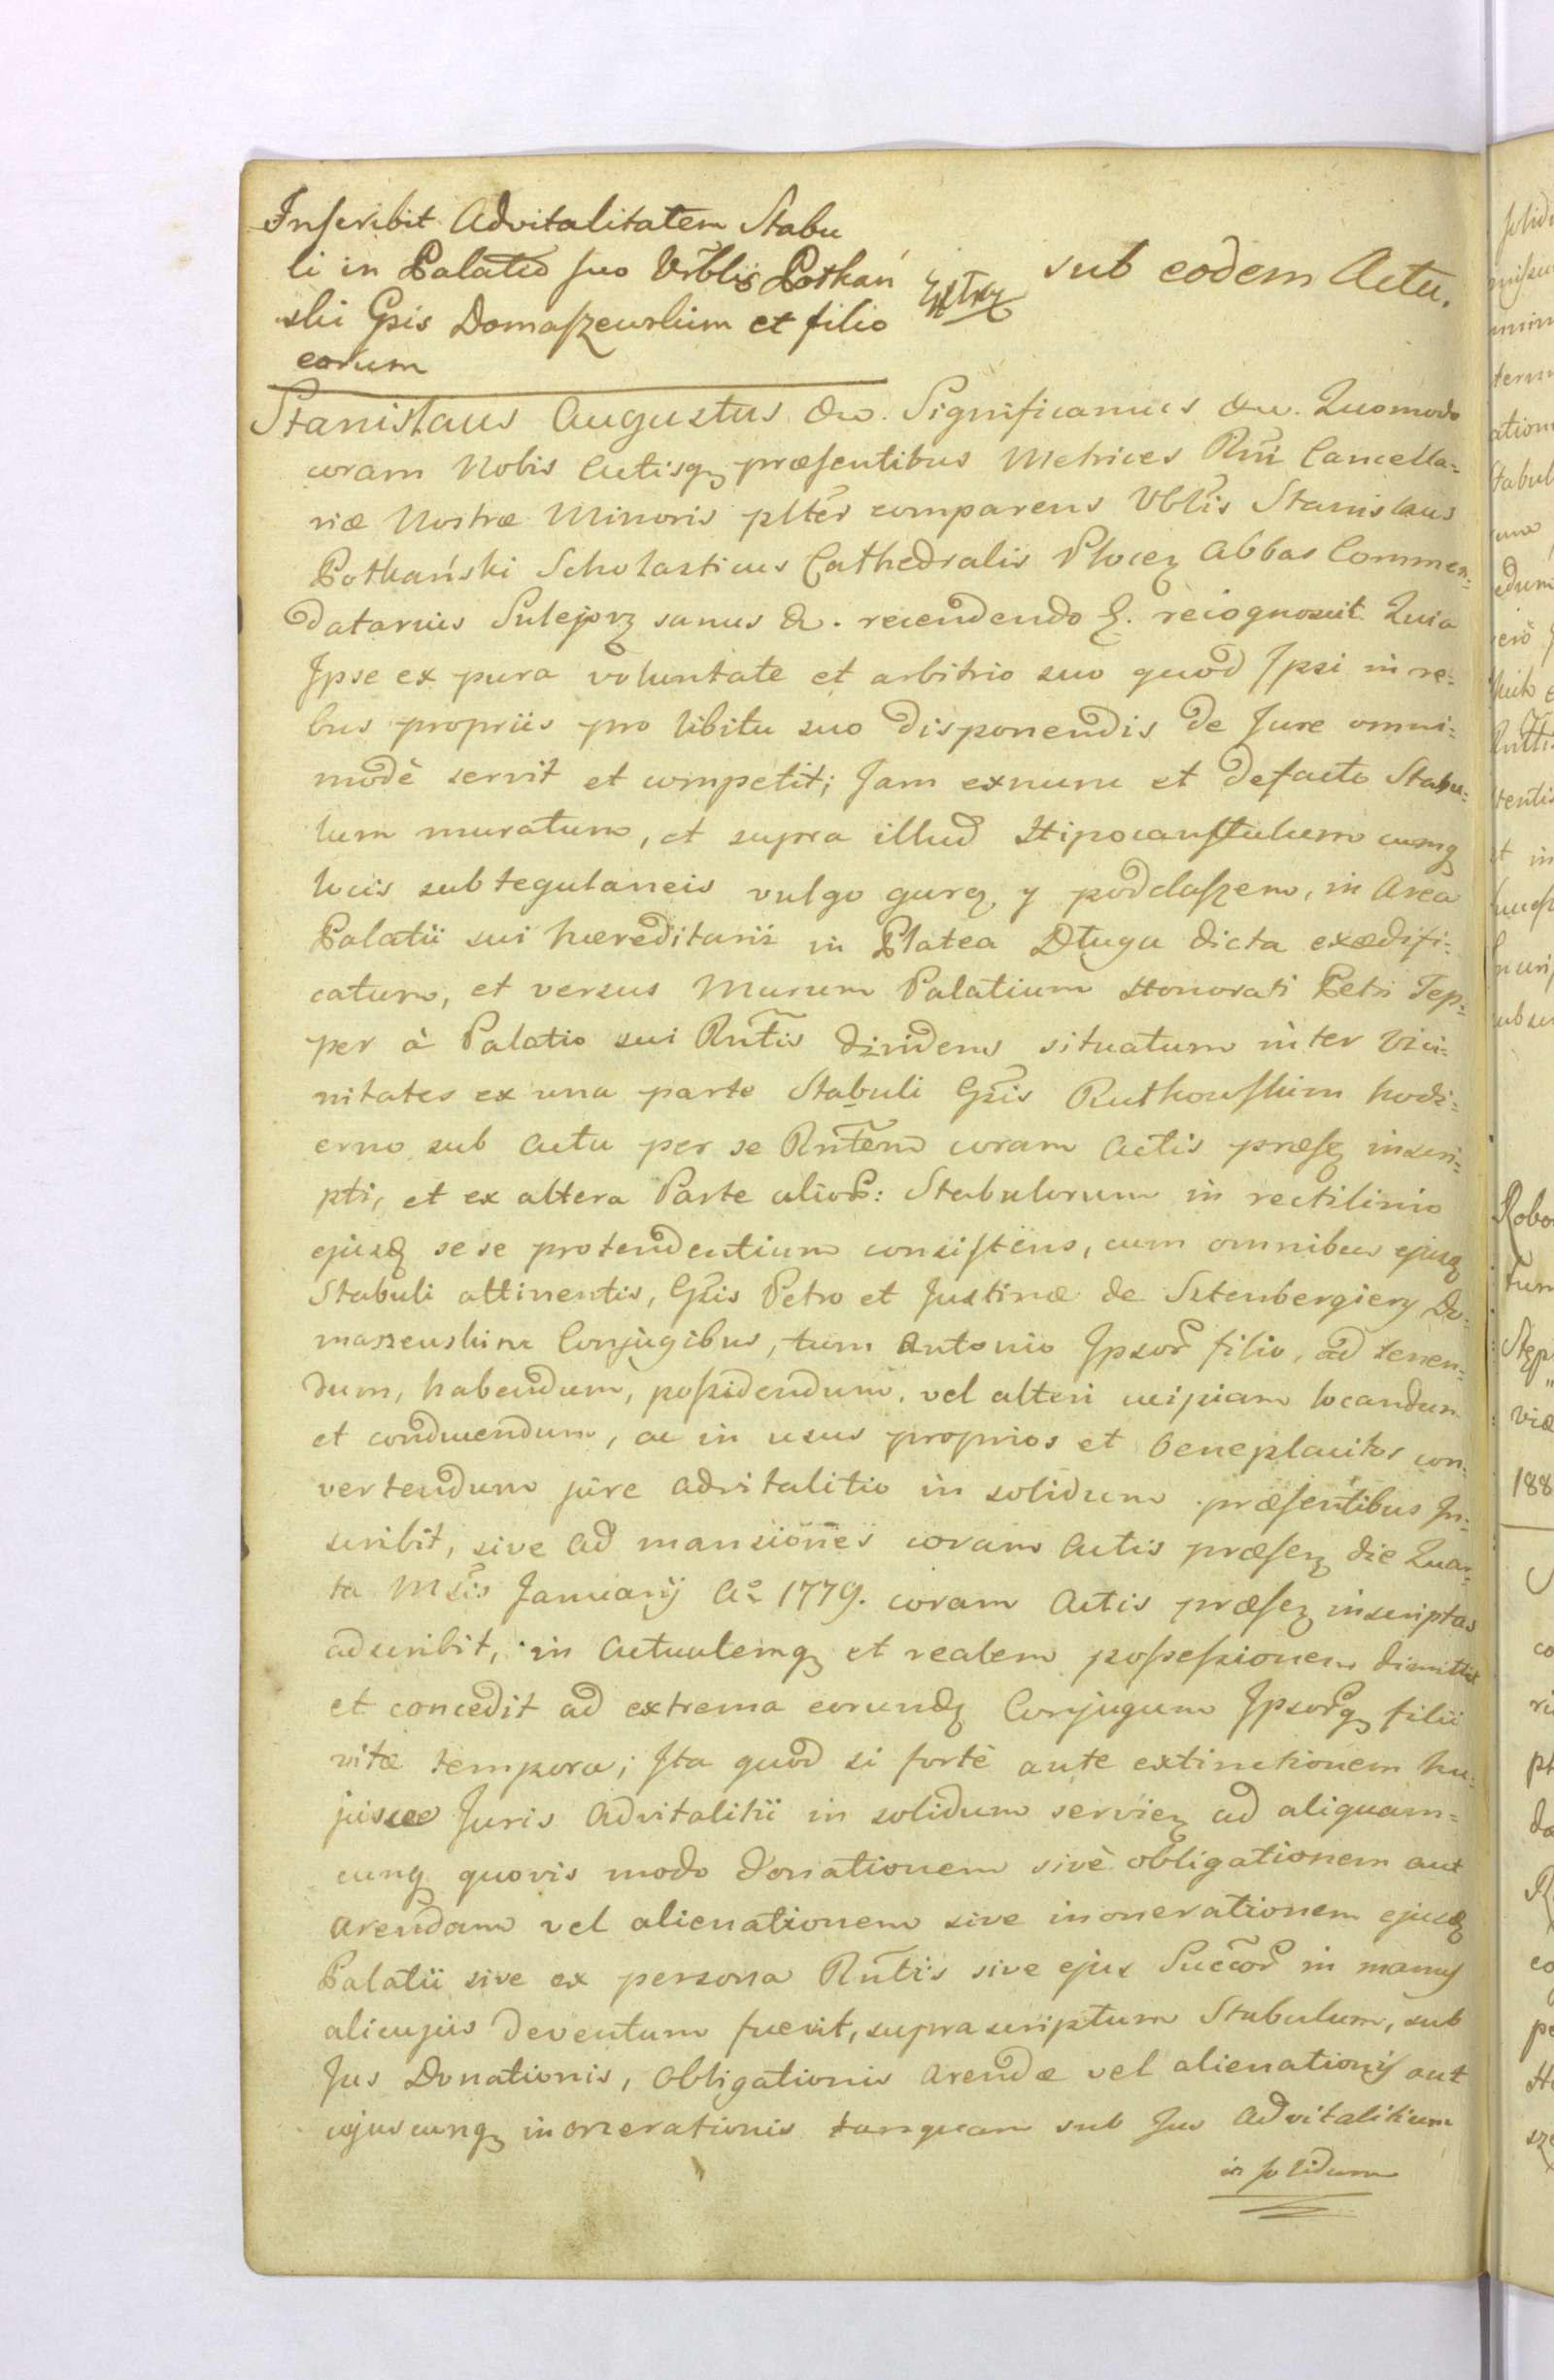 Inscribit Advitalitatem Stabu
li in Palatio suo Urblis Potkań
ski Gsis Domaszewskim et filio
eorum
sub eodem Actu.
Stanislaus Augustus &c. Significamus &c. Quomodo
coram Nobis Actisq; præsentibus Metrices Rni Cancella=
riæ Nostræ Minoris plter comparens Vblis Stanislaus
Potkański Scholasticus Cathedralis Plocen Abbas Commen=
datarius Sulejov sanus &. recendendo &. recognoscit Quia
Ipse ex pura voluntate et arbitrio suo quod Ipsi in re=
bus propriis pro libitu suo disponendis de Jure omni=
modè servit et competit; Jam exnunc et defacto Stabu=
lum muratum, et supra illud Hipocaustulum cumq
locis subtegulaneis vulgo gurą y poddaszem, in Area
Palatii sui hæreditarii in Platea Długa dicta exædifi=
catum, et versus Murum Palatium Honorati Petri Tep=
per à Palatio sui Rntis dividens situatum inter Vici=
nitates ex una parte Stabuli Gsis Rutkowskim hodi=
erno sub Actu per se Rntem coram Actis præsen inscri=
pti, et ex altera Parte alior: Stabulorum in rectilinio
ejusd sese protendentium consistens, cum omnibus ejusd
Stabuli attinentis, Gsis Petro et Justinæ de Sztenbergiery Do=
maszewskim Conjugibus, tum Antonio Ipsor filio, ad tenen=
dum, habendum, possidendum, vel alteri cuipiam locandum
et conducendum, ac in usus proprios et beneplacitos con=
vertendum jure advitalitio in solidum præsentibus In=
scribit, sive ad mansiones coram Actis præsen die Quar=
ta Msis Januarij Aº 1779. coram Actis præsen inscriptas
adscribit, in Actualemq; et realem possessionem dimittit
et concedit ad extrema eorund Conjugum Ipsorq; filii
vitæ tempora; Ita quod si fortè ante extinctionem hu=
jusce Juris Advitalitii in solidum servien ad aliquam=
cunq; quovis modo donationem sivè obligationem aut
arendam vel alienationem sive inonerationem ejusd
Palatii sive ex persona Rntis sive ejus Succor in manus
alicujus deventum fuerit, suprascriptum Stabulum, sub
Jus Donationis, Obligationis Arendæ vel alienationis aut
cujuscunq; inonerationis tanquam sub Jus Advitalitium
in solidum